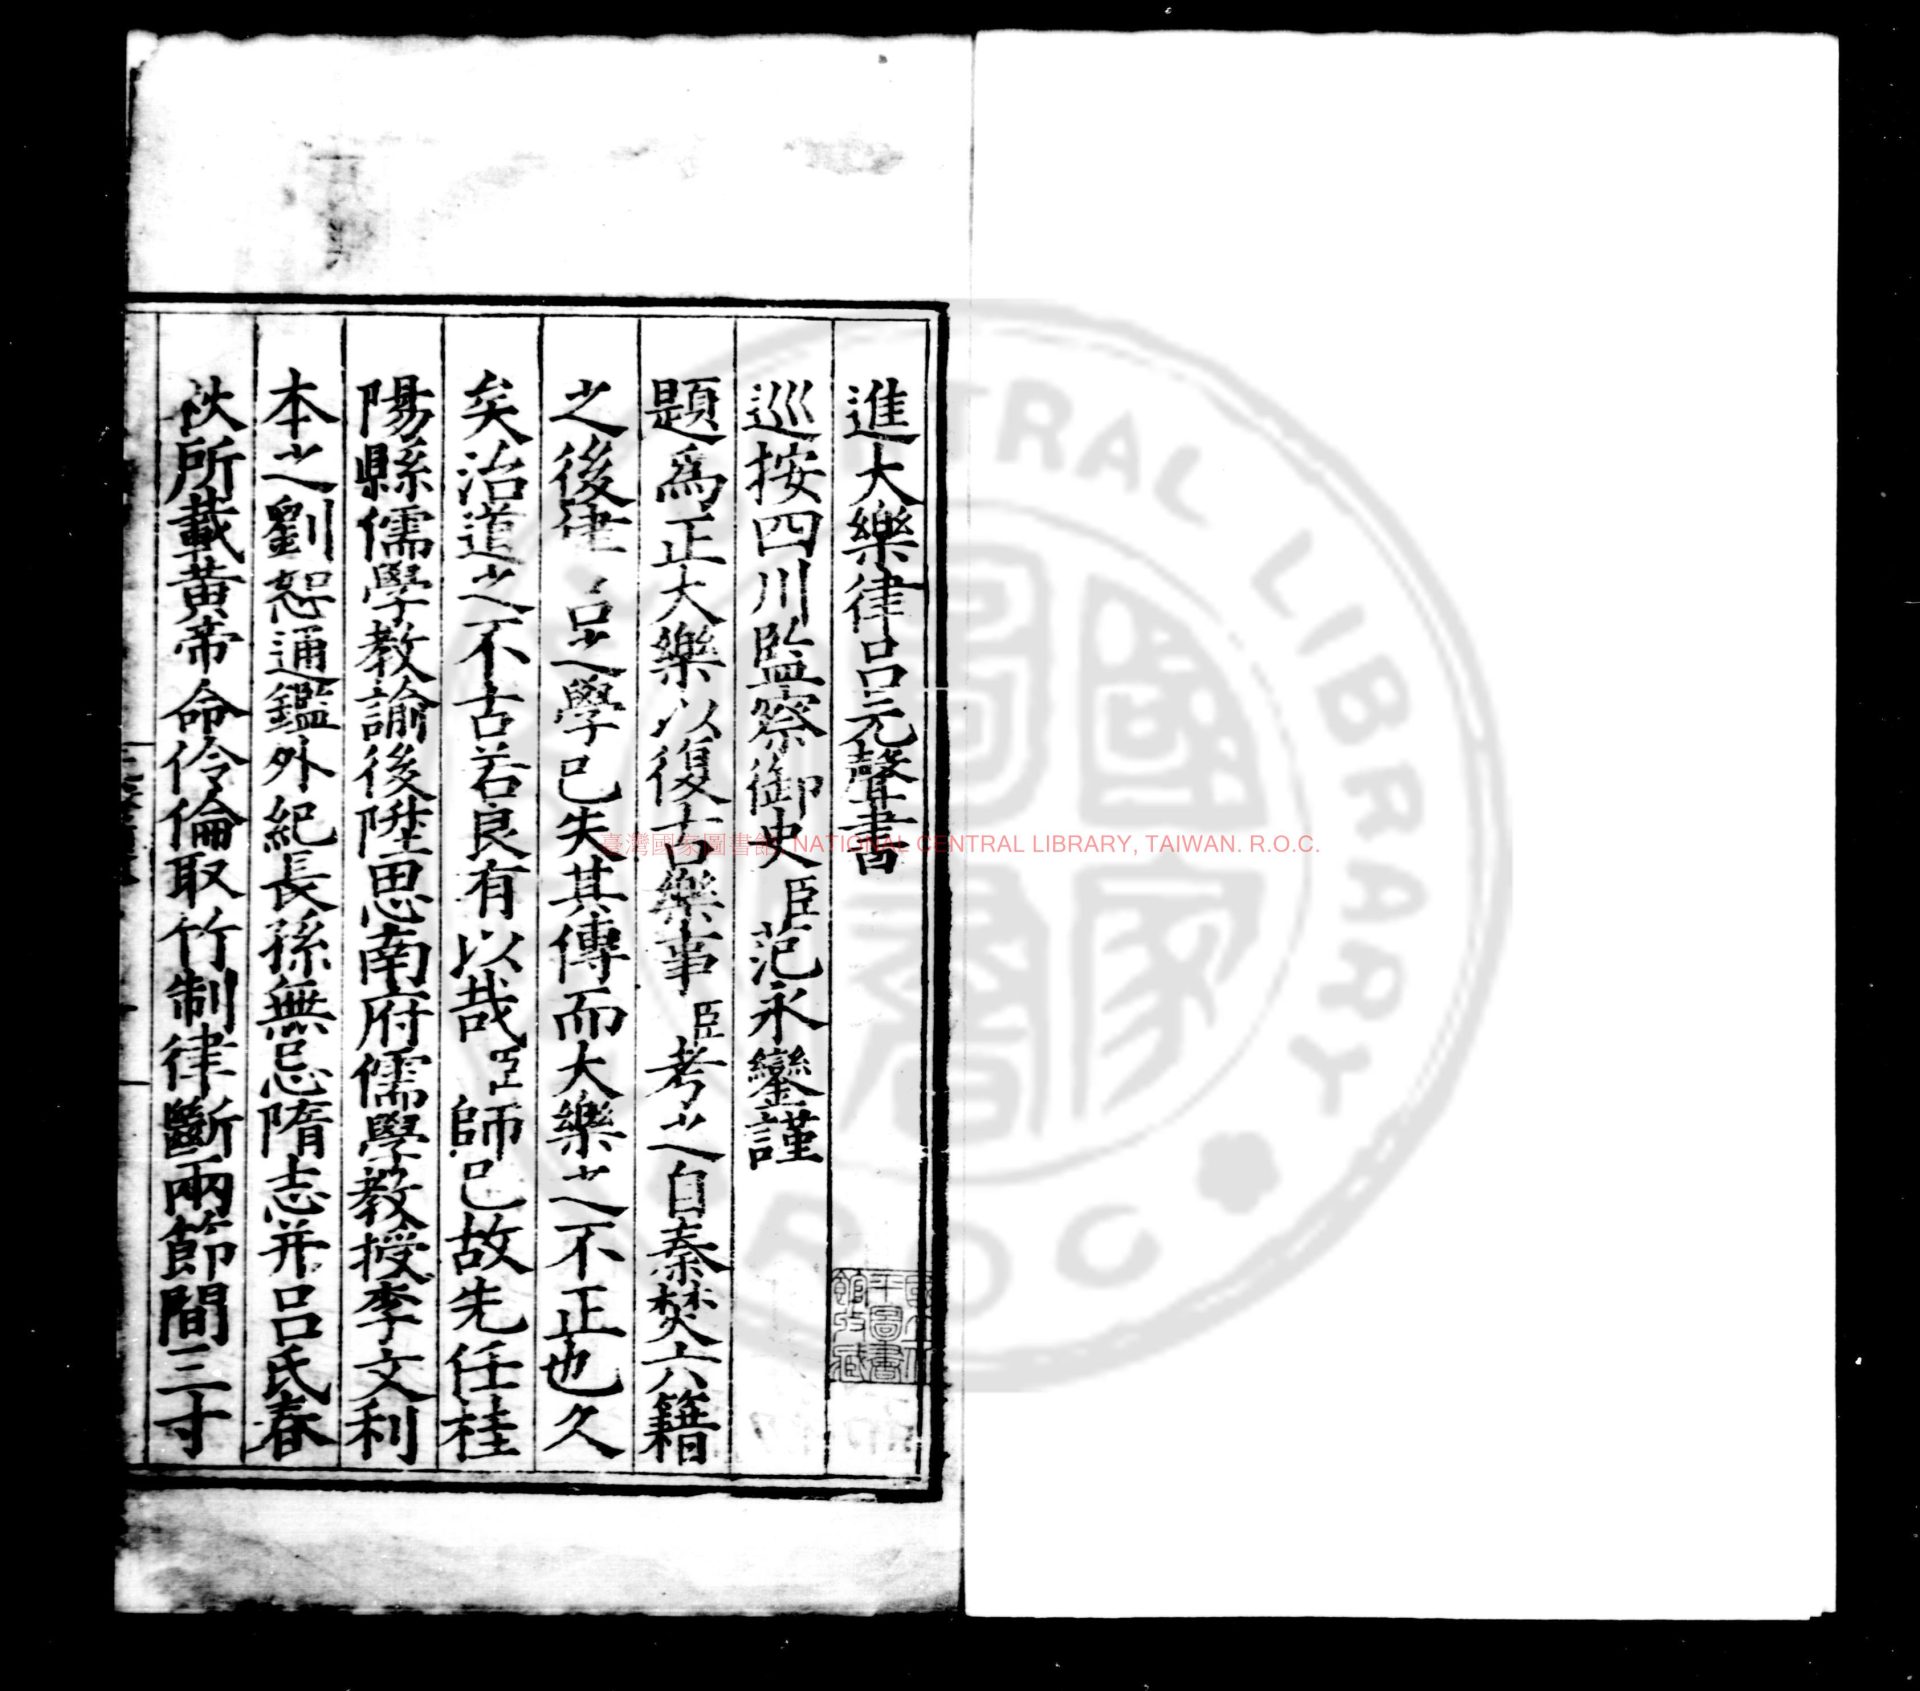 進大樂律呂元聲書
巡按四川監察御史臣范永鑾謹
題爲正大樂以復古樂事臣考之自秦焚六籍
之後律呂之學已失其傳而大樂之不正也久
矣治道之不古若良有以哉臣師已故先任桂
陽縣儒學教諭後陞思南府儒學教授李文利
本之劉恕通鑑外紀長孫無忌隋志并呂氏春
秋所載黃帝命伶倫取竹制律斷兩節間三寸
臺灣國家圖書館 NATIONAL CENTRAL LIBRARY, TAIWAN. R.O.C.
CENTRAL LIBRARY
R O C
國家圖書